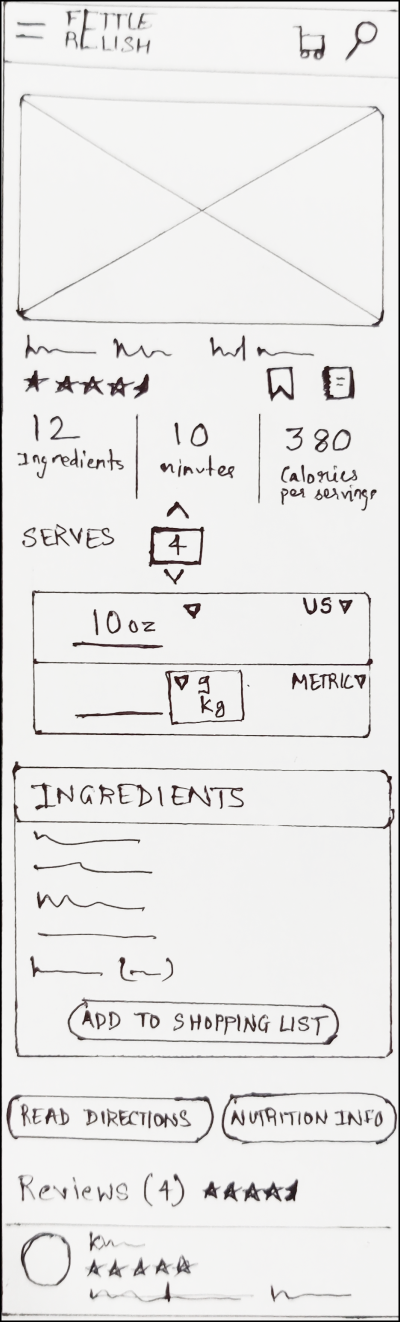 FETTLE
RELISH
12
Ingredients
10
minutes
380
Calories
per servings
SERVES
4
10 oz
US
g
kg
METRIC
INGREDIENTS
ADD TO SHOPPING LIST
READ DIRECTIONS
NUTRITION INFO
Reviews (4)